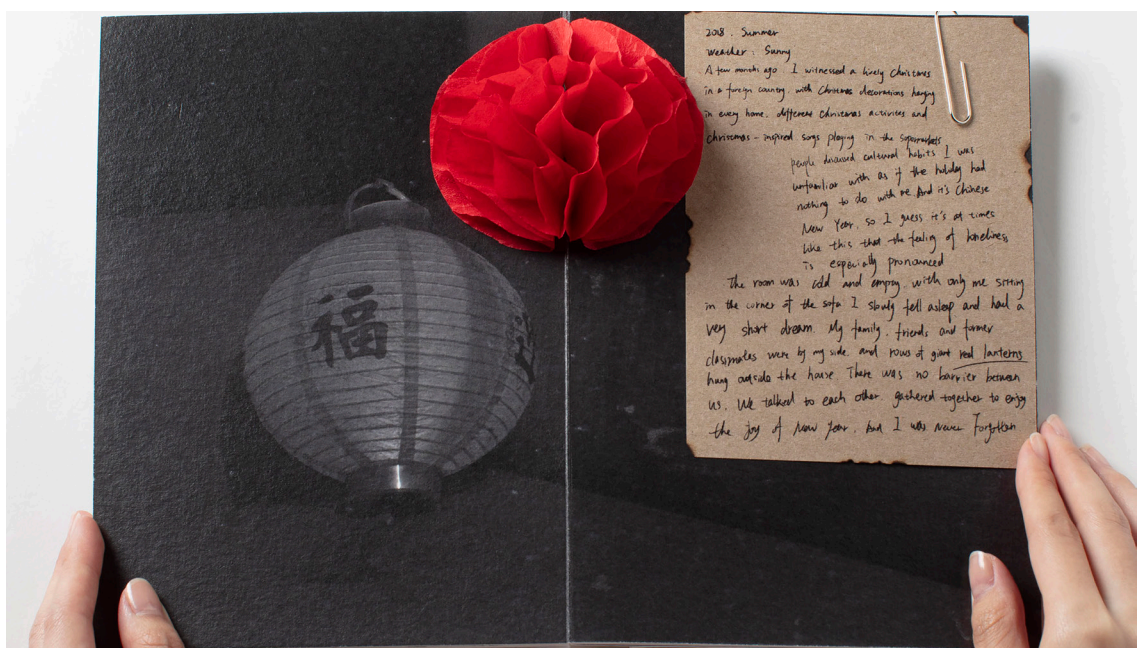 福
2018. Summer
Weather: Sunny
A few months ago. I witnessed a lively Christmas
in a foreign country. with Christmas decorations hanging
in every home. different Christmas activities and
Christmas-inspired songs playing in the supermarkets
people discussed cultural habits I was
unfamiliar with as if the holiday had
nothing to do with me. And it's Chinese
New Year, so I guess it's at times
like this that the feeling of loneliness
is especially pronounced
The room was cold and empty. with only me sitting
in the corner of the sofa I slowly fell asleep and had a
very short dream. My family, friends and former
classmates were by my side. and rows of giant red lanterns
hung outside the house There was no barrier between
us. We talked to each other. gathered together to enjoy
the joy of New Year. And I was never forgotten